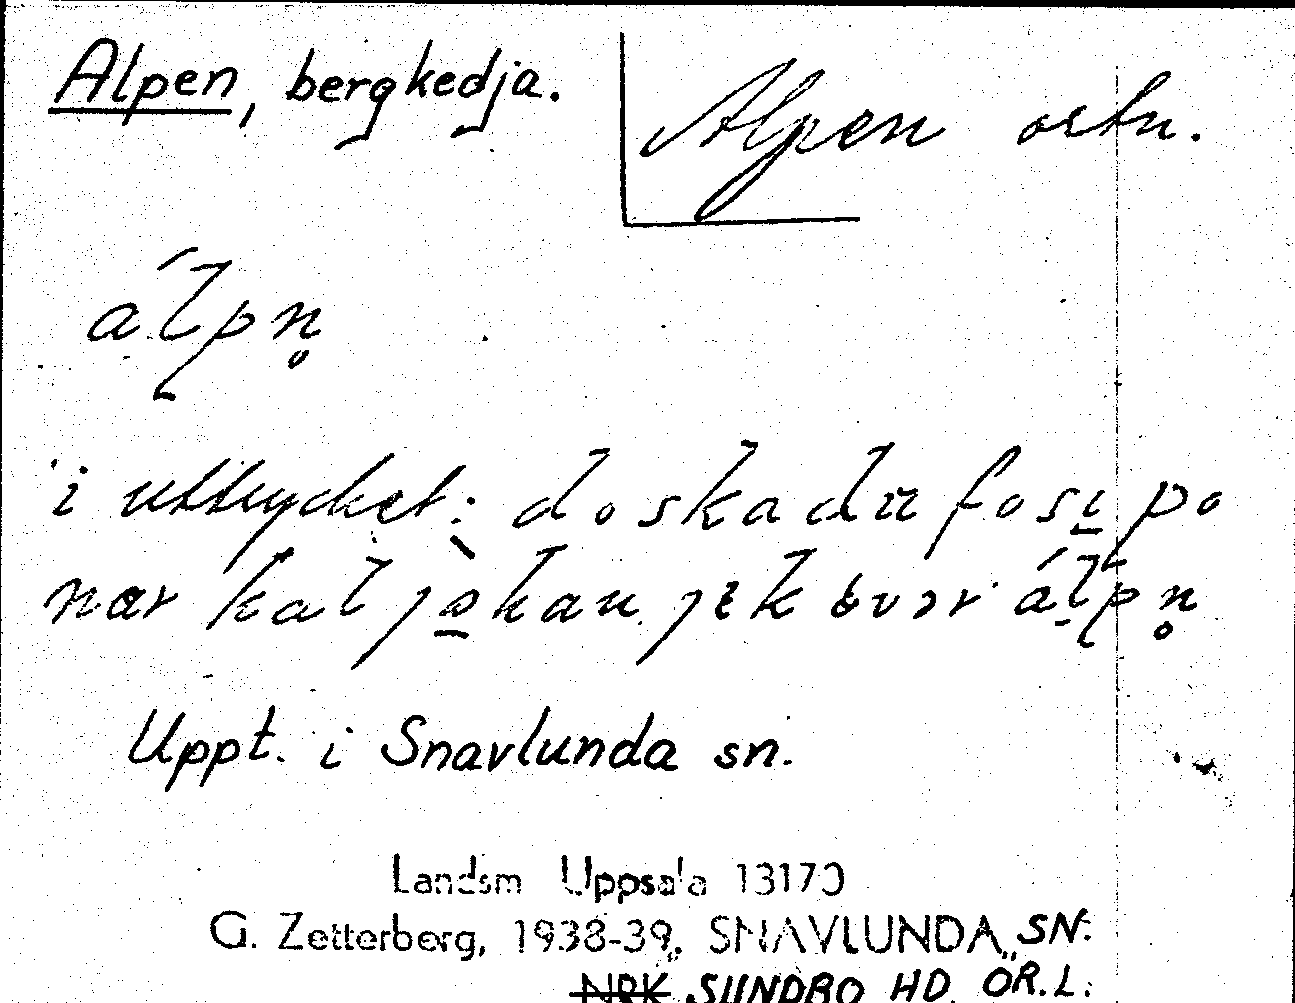 Alpen, bergkedja.
Alpen ortn.
álpn̥
i uttrycket: do ska du fo si po
när kal johan jek över álpn̥
Uppt. i Snavlunda sn.
Landsm Uppsala 13170
G. Zetterberg, 1938-39, SNAVLUNDA SN.
NRK SUNDBO HD ÖR.L.